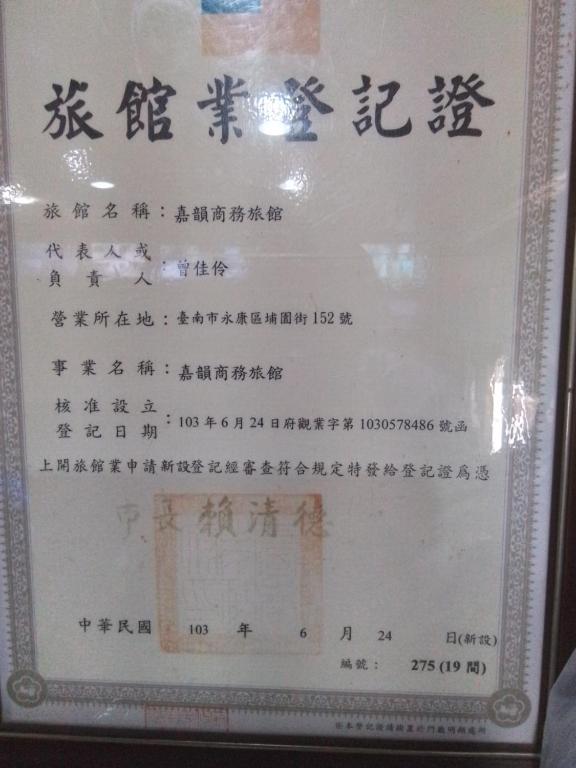 旅館業登記證
旅館名稱：嘉韻商務旅館
代表人或
負責人：曾佳伶
營業所在地：臺南市永康區埔園街152號
事業名稱：嘉韻商務旅館
核准設立
登記日期：103年6月24日府觀業字第1030578486號函
上開旅館業申請新設登記經審查符合規定特發給登記證為憑
市長賴清德
中華民國 103 年 6 月 24 日(新設)
編號： 275 (19間)